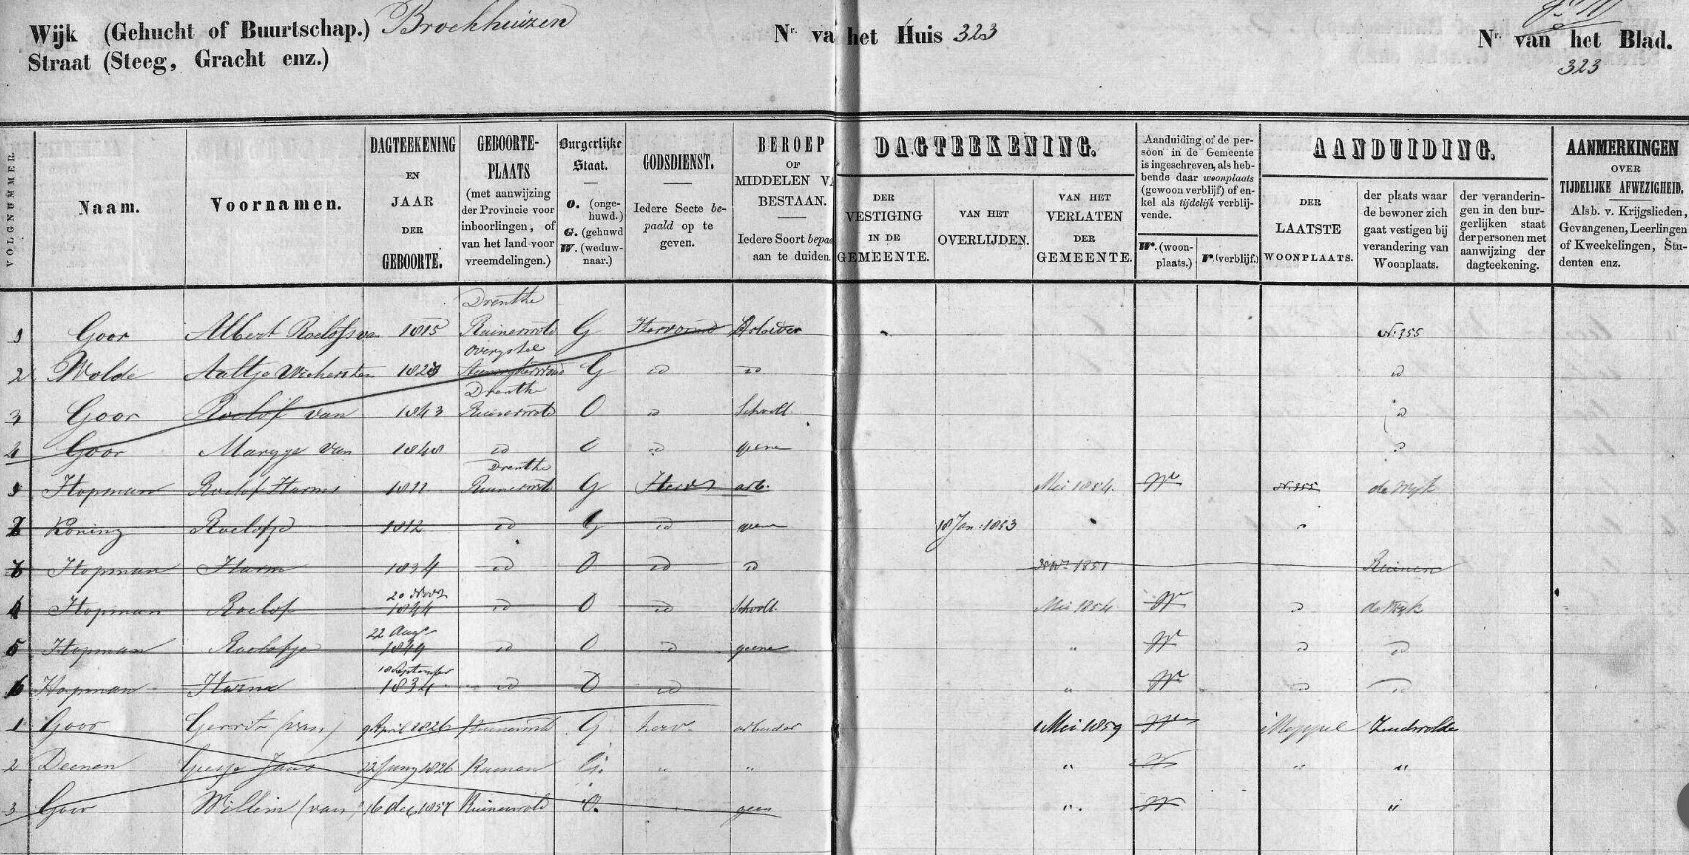 Wijk (Gehucht of Buurtschap.) Broekhuizen Nr. va het Huis 323 Nr. van het Blad.
Straat (Steeg, Gracht enz.) 323
VOLGNUMMER. Naam. Voornamen. DAGTEEKENING EN JAAR DER GEBOORTE. GEBOORTE-PLAATS (met aanwijzing der Provincie voor inboorlingen, of van het land voor vreemdelingen.) Burgerlijke Staat. O. (ongehuwd.) G. (gehuwd W. (weduwnaar.) GODSDIENST. Iedere Secte bepaald op te geven. BEROEP OF MIDDELEN VA BESTAAN. Iedere Soort bepaa aan te duiden. DAGTEEKENING. DER VESTIGING IN DE GEMEENTE. VAN HET OVERLIJDEN. VAN HET VERLATEN DER GEMEENTE. Aanduiding of de persoon in de Gemeente is ingeschreven, als hebbende daar woonplaats (gewoon verblijf) of enkel als tijdelijk verblijvende. W. (woonplaats.) V. (verblijf.) AANDUIDING. DER LAATSTE WOONPLAATS. der plaats waar de bewoner zich gaat vestigen bij verandering van Woonplaats. der veranderingen in den burgerlijken staat der personen met aanwijzing der dagteekening. AANMERKINGEN OVER TIJDELIJKE AFWEZIGHEID, Alsb. v. Krijgslieden, Gevangenen, Leerlingen of Kweekelingen, Studenten enz.
Drenthe
1 Goor Albert Roelofs van 1815 Ruinerwold G Hervormd Arbeider No 355
Overijssel
2 Wolde Aaltje Wichers ten 1823 G id id id
Drenthe
3 Goor Roelof van 1843 Ruinerwold O id School id
4 Goor Margje van 1848 id O id geene id
Drenthe
Hopman Roelof Harms 1811 Ruinerwold G Herv arb. Mei 1854. W de Wijk
Koning Roelofje 1812 id G id geene 18 Jan. 1853 "
Hopman Harm 1834 id O id id Nov. 1851 Ruinen
20 Nov
4 Hopman Roelof 1844 id O id School Mei 1854 W " de Wijk
22 Aug
5 Hopman Roelofje 1849 id O id geene " W " id
18 September
6 Hopman Harm 1834 id O id " W " id
1 Goor Gerrit (van) 9 April 1826 Ruinerwold G herv. arbeider 1 Mei 1859 W Meppel Zuidwolde
2 Deenen Geesje Jans 22 Juny 1826 Ruinen G. " " " W " "
3 Goor Willem (van) 16 dec. 1857 Ruinerwold O. geen " W "